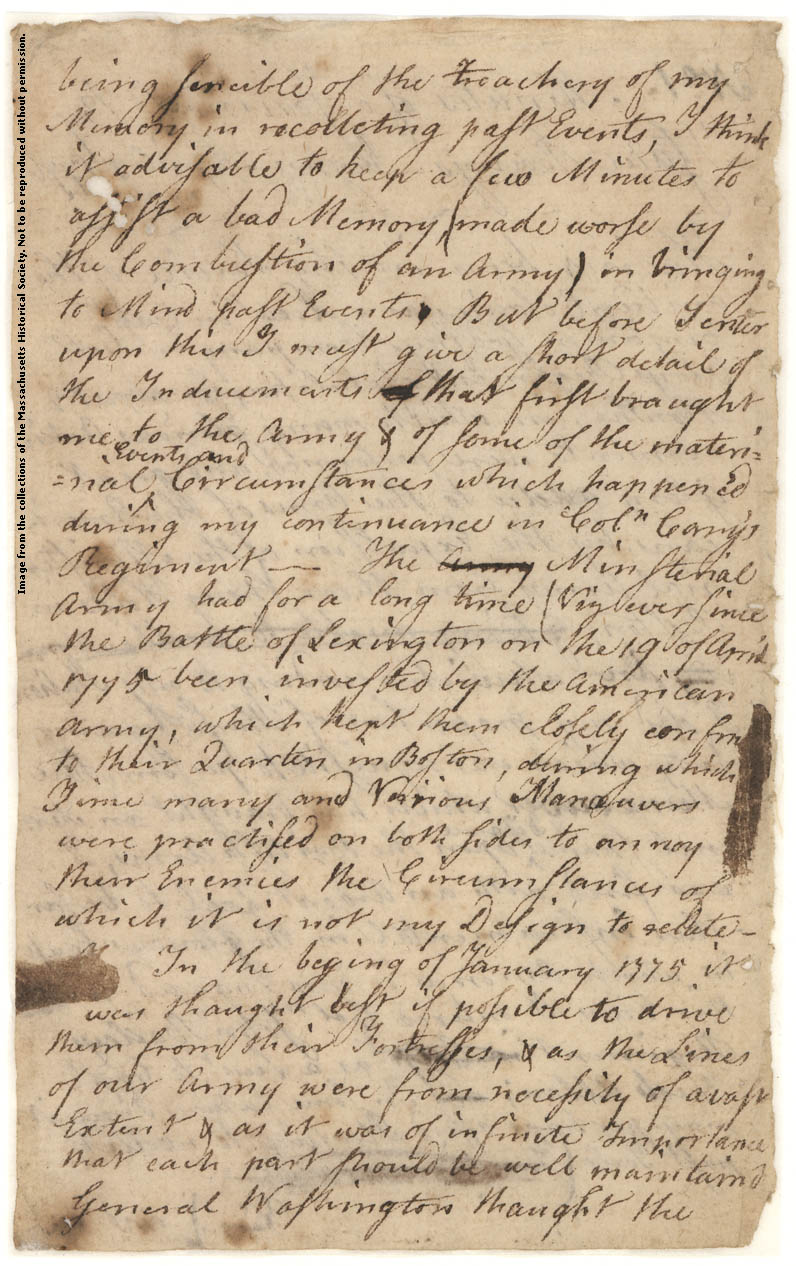 being sencible of the treachery of my
Memory in recolleting past Events, I think
it advisable to keep a few Minutes to
assist a bad Memory, (made worse by
the Combustion of an Army) in bringing
to Mind past Events, But before I enter
upon this I must give a short detail of
the Inducements of that first braught
me to the Army & of some of the materi=
Events and
=nal Circumstances which happened
during my continuance in Coln Carys
Regiment — The Army Minsterial
Army had for a long time (Viz ever since
the Battle of Lexington on the 19 of April
1775 been invested by the American
Army, which kept them closely confin
to their Quarters in Boston, during which
Time many and Various Manœuvers
were practised on both sides to annoy
their Enemies the Circumstances of
which it is not my Design to relate—
In the beging of January 1775 it
was thaught best if possible to drive
them from their Fortresses, & as the Lines
of our Army were from necessity of a vast
Extent & as it was of infinite Importance
that each part should be well maintaind
General Washington thaught the
Image from the collections of the Massachusetts Historical Society. Not to be reproduced without permission.